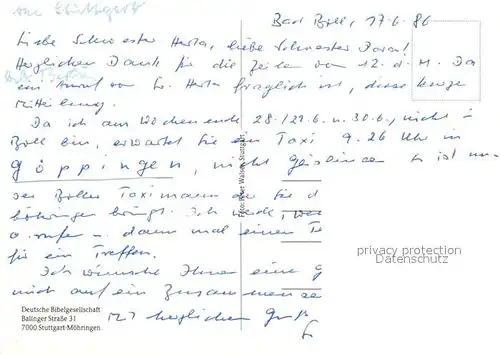 von Stuttgart
Bad Boll, 17.6.86
Liebe Schwester Herta, liebe Schwester Dora!
Herzlichen Dank für die Zeilen vom 12. d. M. Da
ein Anruf von Sr. Herta fraglich ist, diese kurze
Mitteilung.
Da ich am Wochenende 28./29.6. u. 30.6., nicht in
Boll bin, erwartet Sie ein Taxi 9.26 Uhr in
Göppingen, nicht Geislingen. Es ist
der Boller Taximann der Sie
bringt. Ich werde
u. dann mal einen
für ein Treffen.
Ich wünsche Ihnen eine
mich auf ein
Mit herzlichen Gruß
Foto: Peter Walser, Stuttgart
privacy protection
Datenschutz
Deutsche Bibelgesellschaft
Balinger Straße 31
7000 Stuttgart-Möhringen